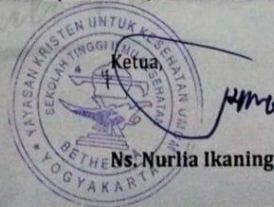 YAYASAN KRISTEN UNTUK KESEHATAN UMUM
SEKOLAH TINGGI ILMU KESEHATAN
BETHESDA
YOGYAKARTA
Ketua,
Ns. Nurlia Ikaning